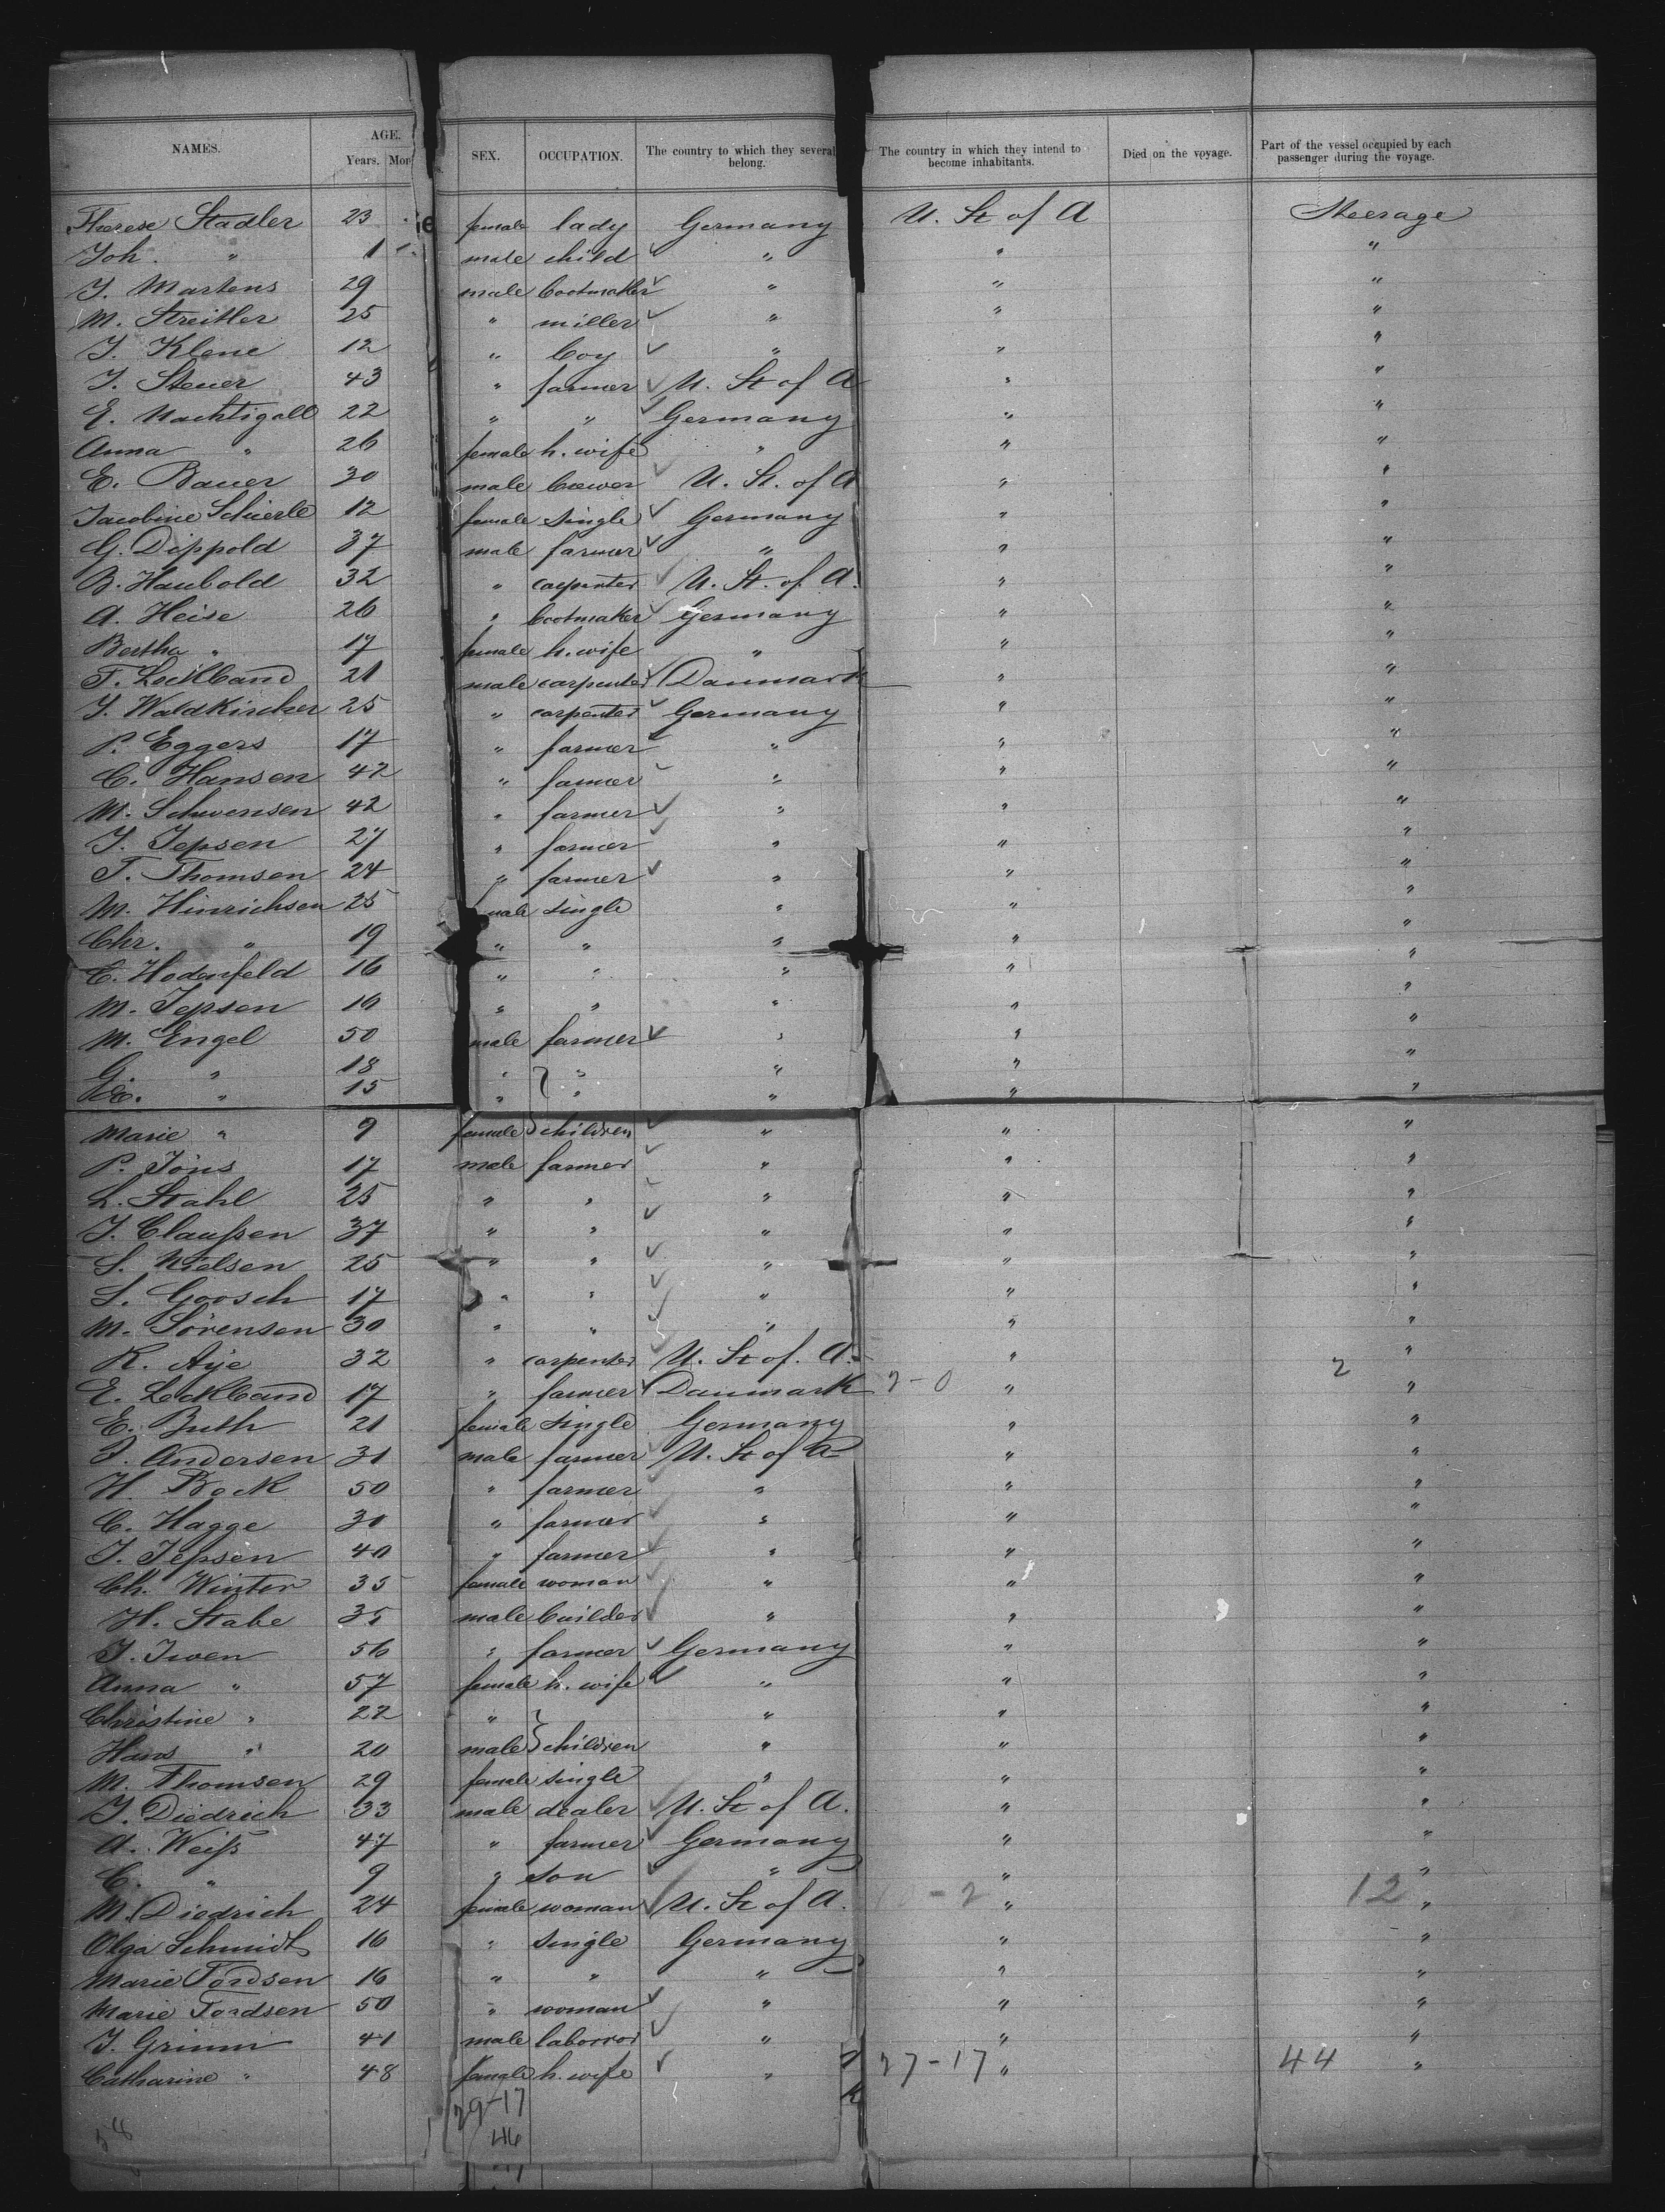 NAMES. AGE. Years. Mon SEX. OCCUPATION. The country to which they several belong. The country in which they intend to become inhabitants. Died on the voyage. Part of the vessel occupied by each passenger during the voyage.
Therese Stadler 23 female lady Germany U. St of A Steerage
Joh. " 1 male child " " "
J. Martens 29 male bootmaker " " "
M. Streitler 25 " miller " " "
J. Klene 12 " boy " " "
J. Steuer 43 " farmer U. St of A " "
E. Nachtigall 22 " " Germany " "
Anna " 26 female h. wife " " "
E. Bauer 30 male brewer U. St. of A " "
Jacobine Schierle 12 female single Germany " "
G. Dippold 37 male farmer " " "
B. Haubold 32 " carpenter U. St. of A. " "
A. Heise 26 " bootmaker Germany " "
Bertha " 17 female h. wife " " "
F. Lockband 21 male carpenter Danmark " "
J. Waldkircher 25 " carpenter Germany " "
P. Eggers 17 " farmer " " "
C. Hansen 42 " farmer " " "
M. Schwensen 42 " farmer " " "
J. Jepsen 27 " farmer " " "
T. Thomsen 24 " farmer " " "
M. Hinrichsen 25 male single " " "
Chr. " 19 " " " " "
E. Hodenfeld 16 " " " " "
M. Jepsen 16 " " " " "
M. Engel 50 male farmer " " "
G. " 18 " " " " "
" 15 " " " " "
Marie " 9 female children " " "
P. Jöns 17 male farmer " " "
L. Stahl 25 " " " " "
J. Claußen 37 " " " " "
S. Nielsen 25 " " " " "
S. Goosch 17 " " " " "
M. Sörensen 30 " " " " "
R. Aye 32 " carpenter U. St of. A. " "
2
E. Lockband 17 " farmer Danmark " "
E. Buth 21 female single Germany " "
P. Andersen 31 male farmer U. St of A " "
H. Bock 50 " farmer " " "
C. Hagge 30 " farmer " " "
J. Jepsen 40 " farmer " " "
Ch. Winter 35 female woman " " "
H. Stabe 35 male builder " " "
J. Iwen 56 " farmer Germany " "
Anna " 57 female h. wife " " "
Christine " 22 " " " "
Hans " 20 male children " " "
M. Thomsen 29 female single " " "
J. Diedrich 33 male dealer U. St of A. " "
A. Weiß 47 " farmer Germany " "
C. " 9 " son " " "
M. Diedrich 24 female woman U. St of A. - 2 " 12 "
Olga Schmidt 16 " single Germany " "
Marie Tordsen 16 " " " " "
Marie Tordsen 50 " woman " " "
J. Grimm 41 male laborror " " "
Catharine " 48 female h. wife " 27-17 " 44 "
29-17
46
58